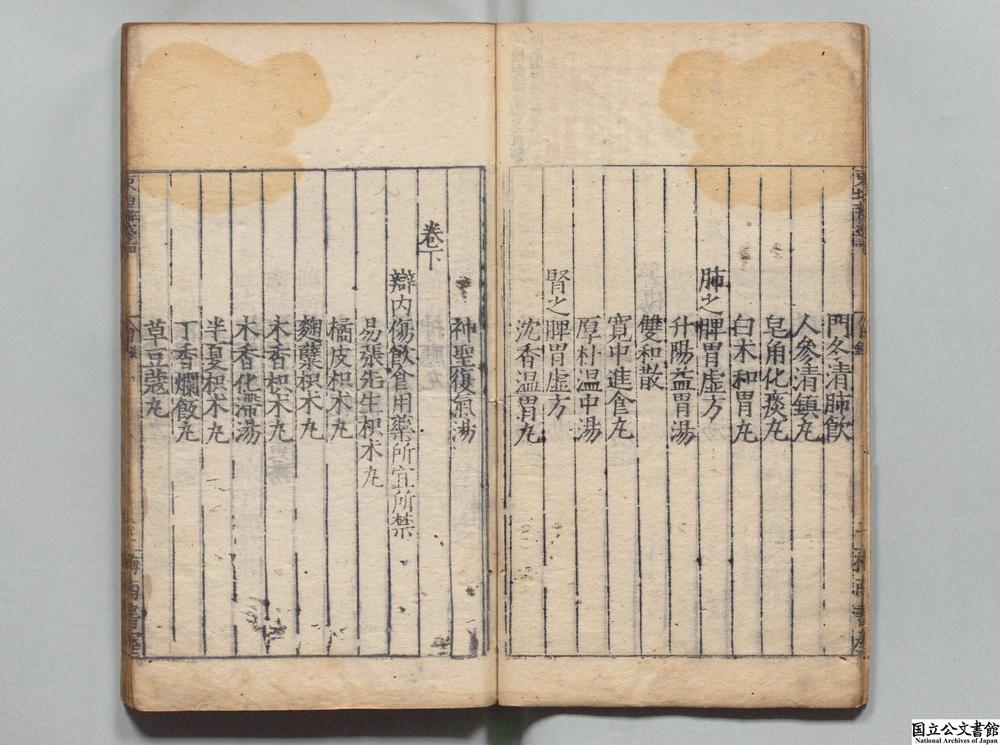 門冬清肺飲
人參清鎮丸
皂角化痰丸
白术和胃丸
肺之脾胃虛方
升陽益胃湯
雙和散
寬中進食丸
厚朴溫中湯
腎之脾胃虛方
沈香溫胃丸
神聖復氣湯
卷下
辯內傷飲食用藥所宜所禁
易張先生枳术丸
橘皮枳术丸
麴糵枳术丸
木香枳术丸
木香化滯湯
半夏枳术丸
丁香爛飯丸
草豆蔻丸
梅南書屋
国立公文書館
National Archives of Japan